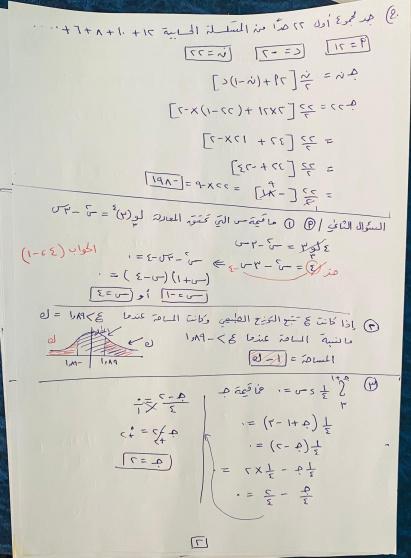 جد مجموع أول ٢٢ حدًا من المتسلسلة الحسابية ١٢ + ١٠ + ٨ + ٦ + ....
أ = ١٢   د = -٢   ن = ٢٢
جـ ن = ن/٢ [٢أ + (ن - ١)د]
جـ ٢٢ = ٢٢/٢ [٢×١٢ + (٢٢ - ١)×-٢]
= ٢٢/٢ [٢٤ + ٢١×-٢]
= ٢٢/٢ [٢٤ + -٤٢]
= ٢٢/٢ [-١٨] = ٢٢×-٩ = -١٩٨
السؤال الثاني / أ) ① ما قيمة س التي تحقق المعادلة لو٣(٣)^٤ = س² - ٣س
٤لو٣ = س² - ٣س
٤ = س² - ٣س ⇐ س² - ٣س - ٤ = ٠
(س + ١)(س - ٤) = ٠
س = -١ أو س = ٤
الجواب (٤، -١)
② إذا كانت ع تتبع التوزيع الطبيعي وكانت المساحة عندما ع > ١,٨٩ = ك
ما نسبة المساحة عندما ع > -١,٨٩
المساحة = ١ - ك
ك
ك
-١,٨٩   ١,٨٩
③ ∫ ٣ جـ+١ ١/٤ دس = ٠ ما قيمة جـ
١/٤ (جـ + ١ - ٣) = ٠
١/٤ (جـ - ٢) = ٠
١/٤ جـ - ١/٤ × ٢ =
جـ/٤ - ٢/٤ = ٠
جـ - ٢/٤ = ٠/١
جـ - ٢ = ٠
+٢ +٢
جـ = ٢
٢